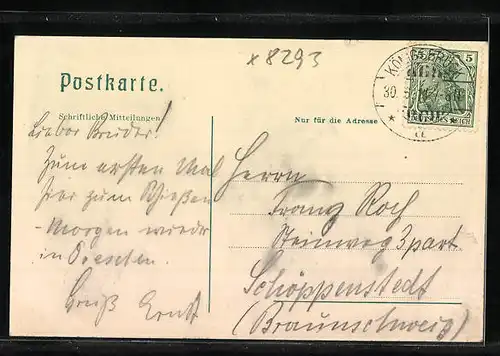 x 8293
Postkarte.
Schriftliche Mitteilungen
Nur für die Adresse
5
30
REICH
Lieber Bruder!
Zum ersten Mal
hier zum Schießen
Morgen wieder
in Dresden.
Gruß Ernst
Herrn
Franz Roch
Steinweg 3 part.
Schöppenstedt
(Braunschweig)